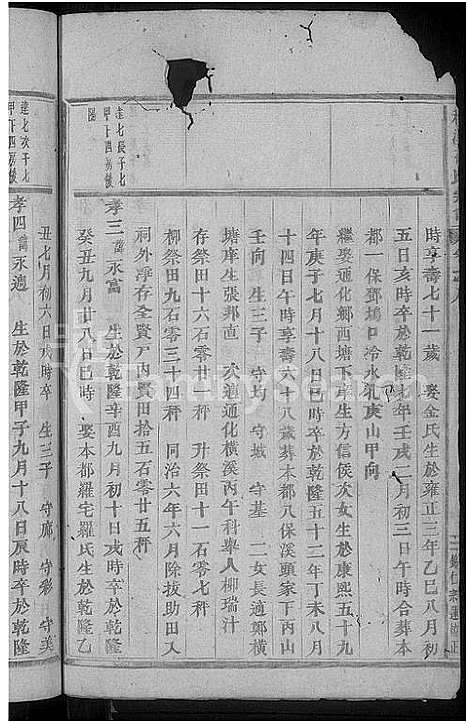 時享壽七十一歲 娶金氏生於雍正三年乙巳八月初
五日亥時卒於乾隆七年壬戌二月初三日午時合葬本
都一保鄧塢口冷水乳庚山甲向
繼娶通化鄉西塘下岸生方信侯次女生於康熙五十九
年庚子七月十八日巳時卒於乾隆五十二年丁未八月
十四日午時享壽六十八歲葬本都八保溪頭家下丙山
壬向 生三子 守均 守城 守基 二女長適鄭橫
塘庠生張邦直 次適通化橫溪丙午科舉人柳瑞汁
存祭田六石零廿一秤 升祭田十一石零七秤
柳祭田九石零三十四秤 同治六年六月除拔助田入
祠外淨存全賢戶內賢田拾五石零廿五秤
達七長子七
甲下四房後
陽
孝三 諱永富 生於乾隆辛酉九月初十日戌時卒於乾隆
癸丑九月廿八日巳時 娶本都羅宅羅氏生於乾隆乙
丑七月初六日戌時卒 生三子 守廊 守彩 守美
達七次子七
甲下四房後
孝四 諱永適 生於乾隆甲子九月十八日辰時卒於乾隆
FamilySearch